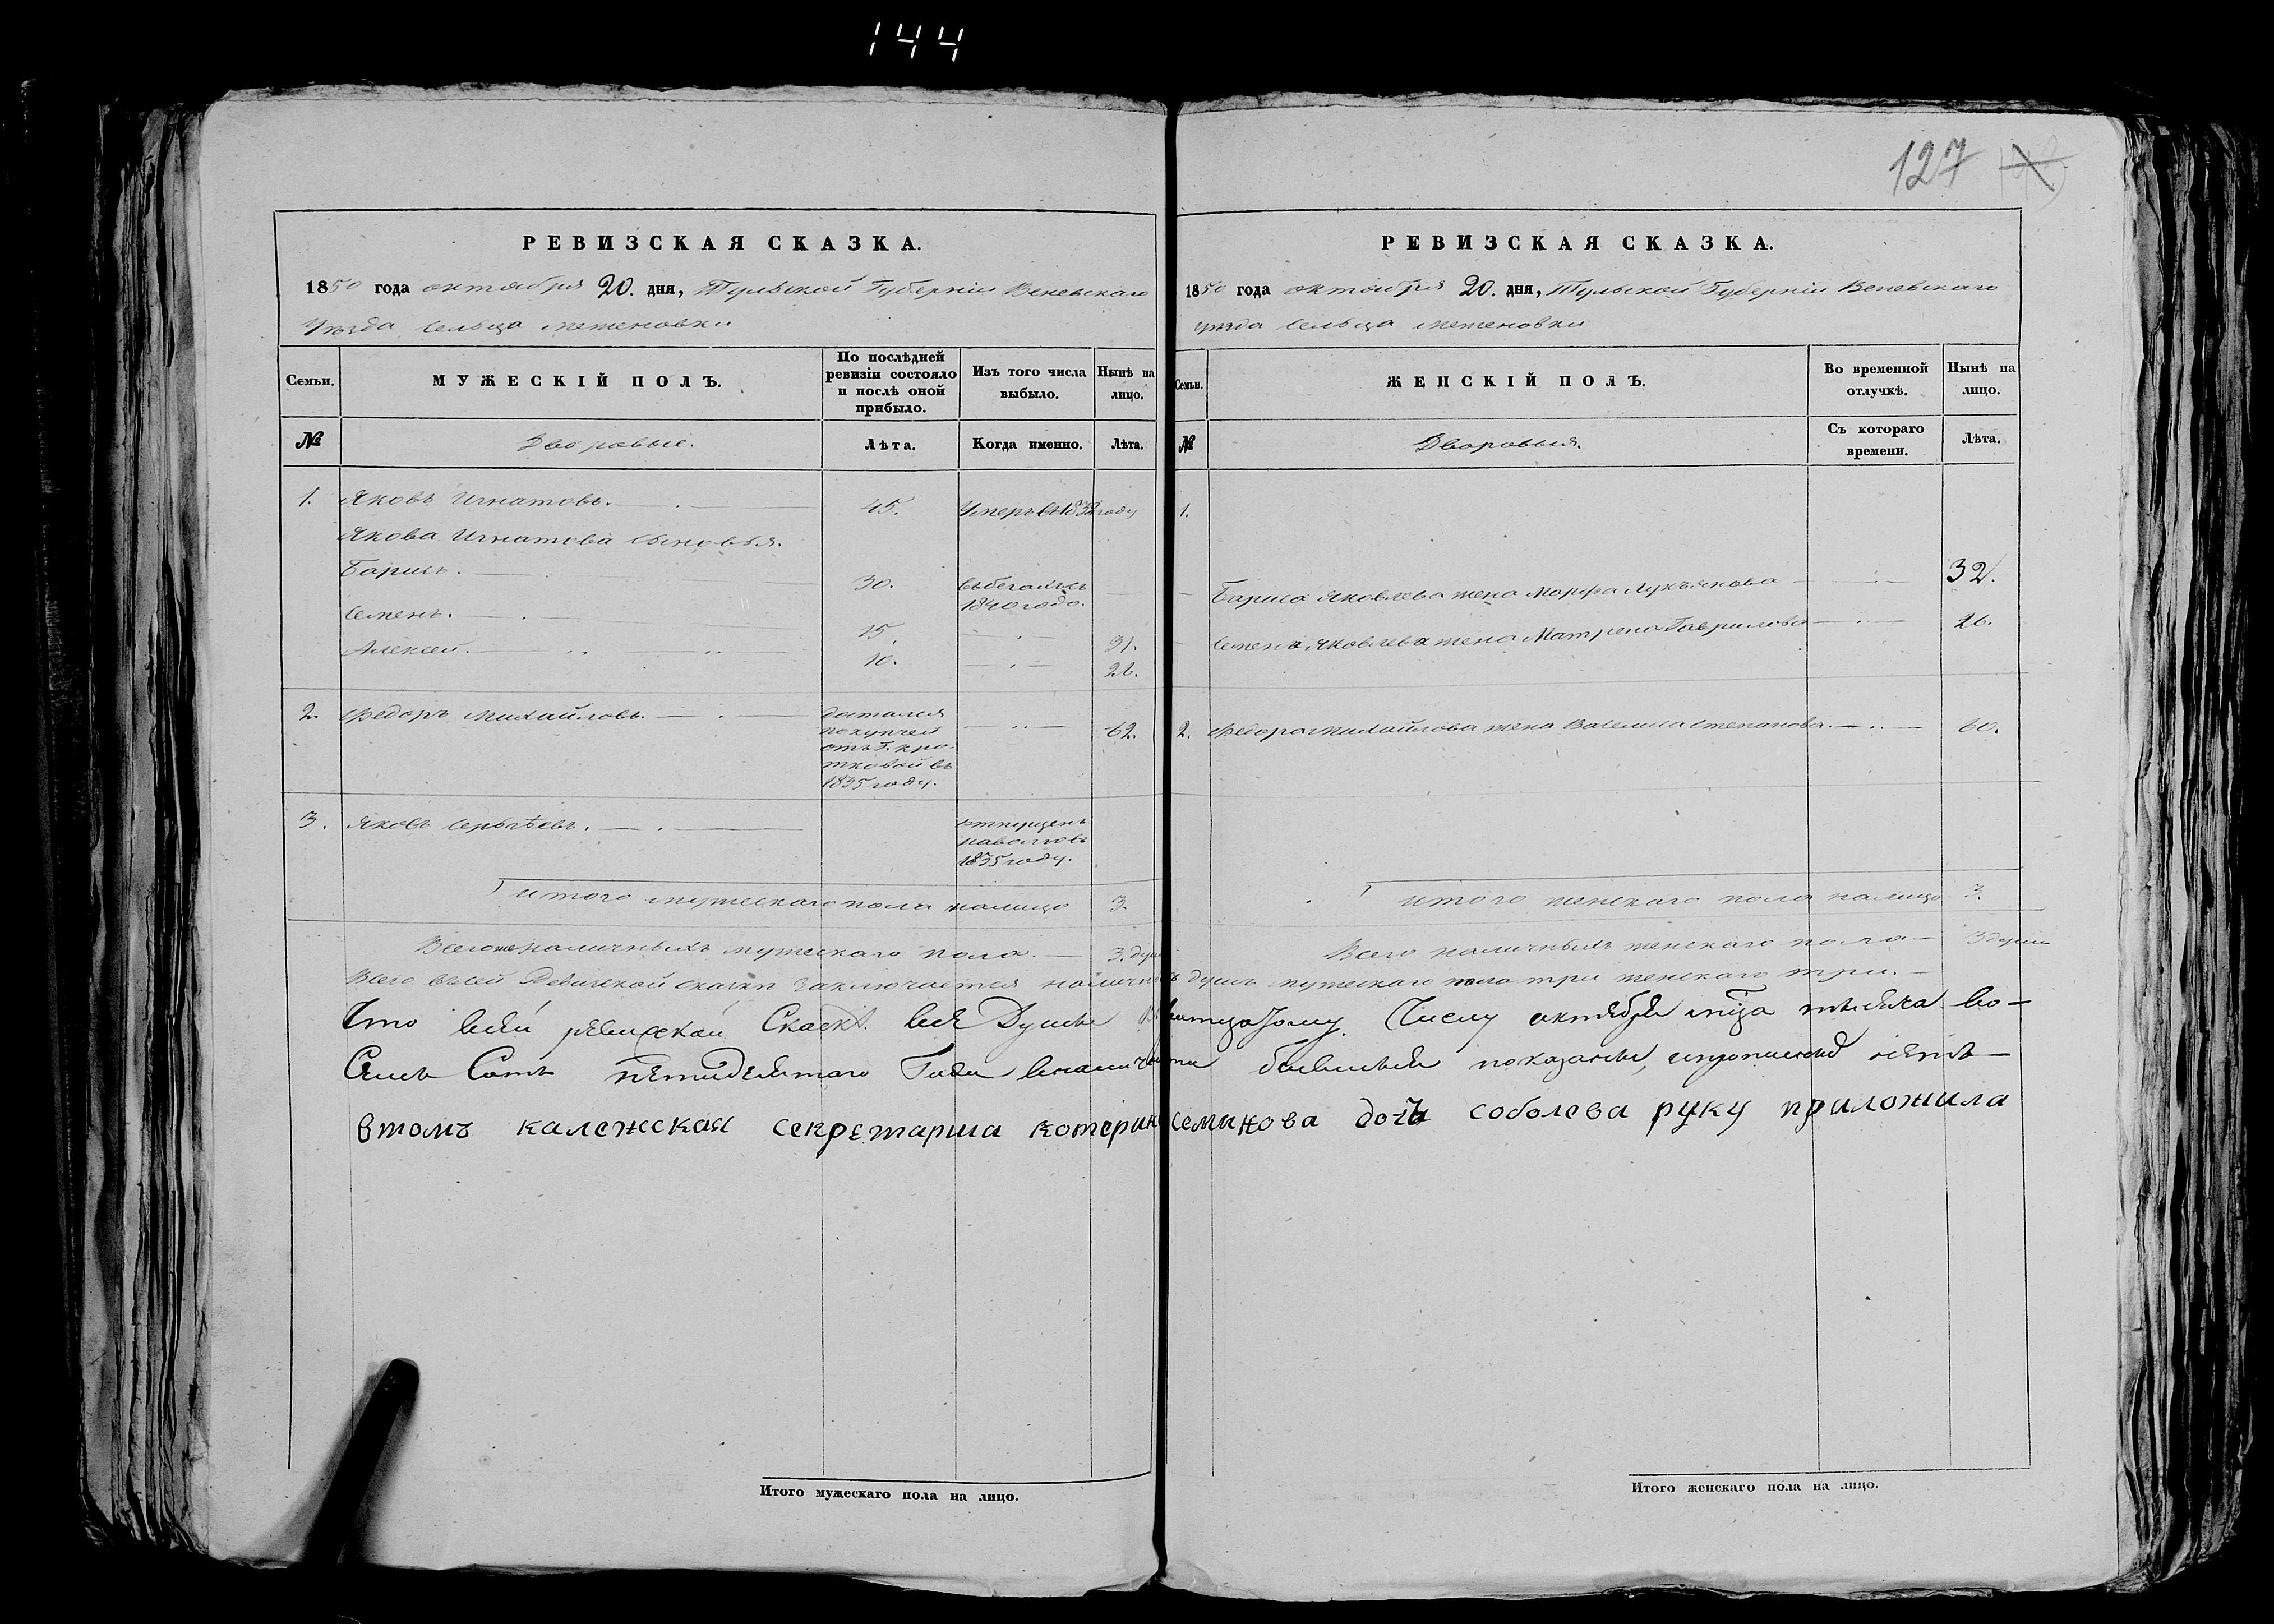 144
127
РЕВИЗСКАЯ СКАЗКА.
1850 года октября 20. дня, Тульской Губернiи Веневскаго
Уѣзда сельца метеновки
Семьи.
МУЖЕСКІЙ ПОЛЪ.
По послѣдней ревизіи состояло и послѣ оной прибыло.
Изъ того числа выбыло.
Нынѣ на лицо.
№
Дворовые.
Лѣта.
Когда именно.
Лѣта.
1. Яковъ Игнатовъ. 45. Умеръ въ 1838 году
Якова Игнатова сыновья.
Борисъ. 30. въбегахъ съ
1840 года.
Семенъ. 15. 31.
Алексей. 10. 26.
2. Федоръ Михайловъ. достался 62.
покупкей
отъ Г. кро-
тковой въ
1835 году.
3. Яковъ Сергѣевъ. отпущенъ
наволю въ
1835 году.
итого мужескаго пола налицо 3.
Всего наличныхъ мужескаго пола. 3. душ
РЕВИЗСКАЯ СКАЗКА.
1850 года октября 20. дня, Тульской Губернiи Веневскаго
уѣзда сельца метеновки
Семьи.
ЖЕНСКІЙ ПОЛЪ.
Во временной отлучкѣ.
Нынѣ на лицо.
№
Дворовыя.
Съ котораго времени.
Лѣта.
1.
Бориса Яковлева жена Марфа Лукъянова 32.
Семена Яковлева жена Матрена Гаврилова 26.
2. Федора Михайлова жена Василиса Степанова. 60.
итого женскаго пола налицо 3.
Всего наличныхъ женскаго пола 3 души
Всего въсей Ревиской скаски заключается наличныхъ душъ мужескаго пола три женскаго три.
Что всей ревиской Скаскѣ все Души Числу октября
Семъ Сотъ Года показаны
втомъ калежская секретарша котерина семинова дочь соболева руку приложила
Итого мужескаго пола на лицо.
Итого женскаго пола на лицо.